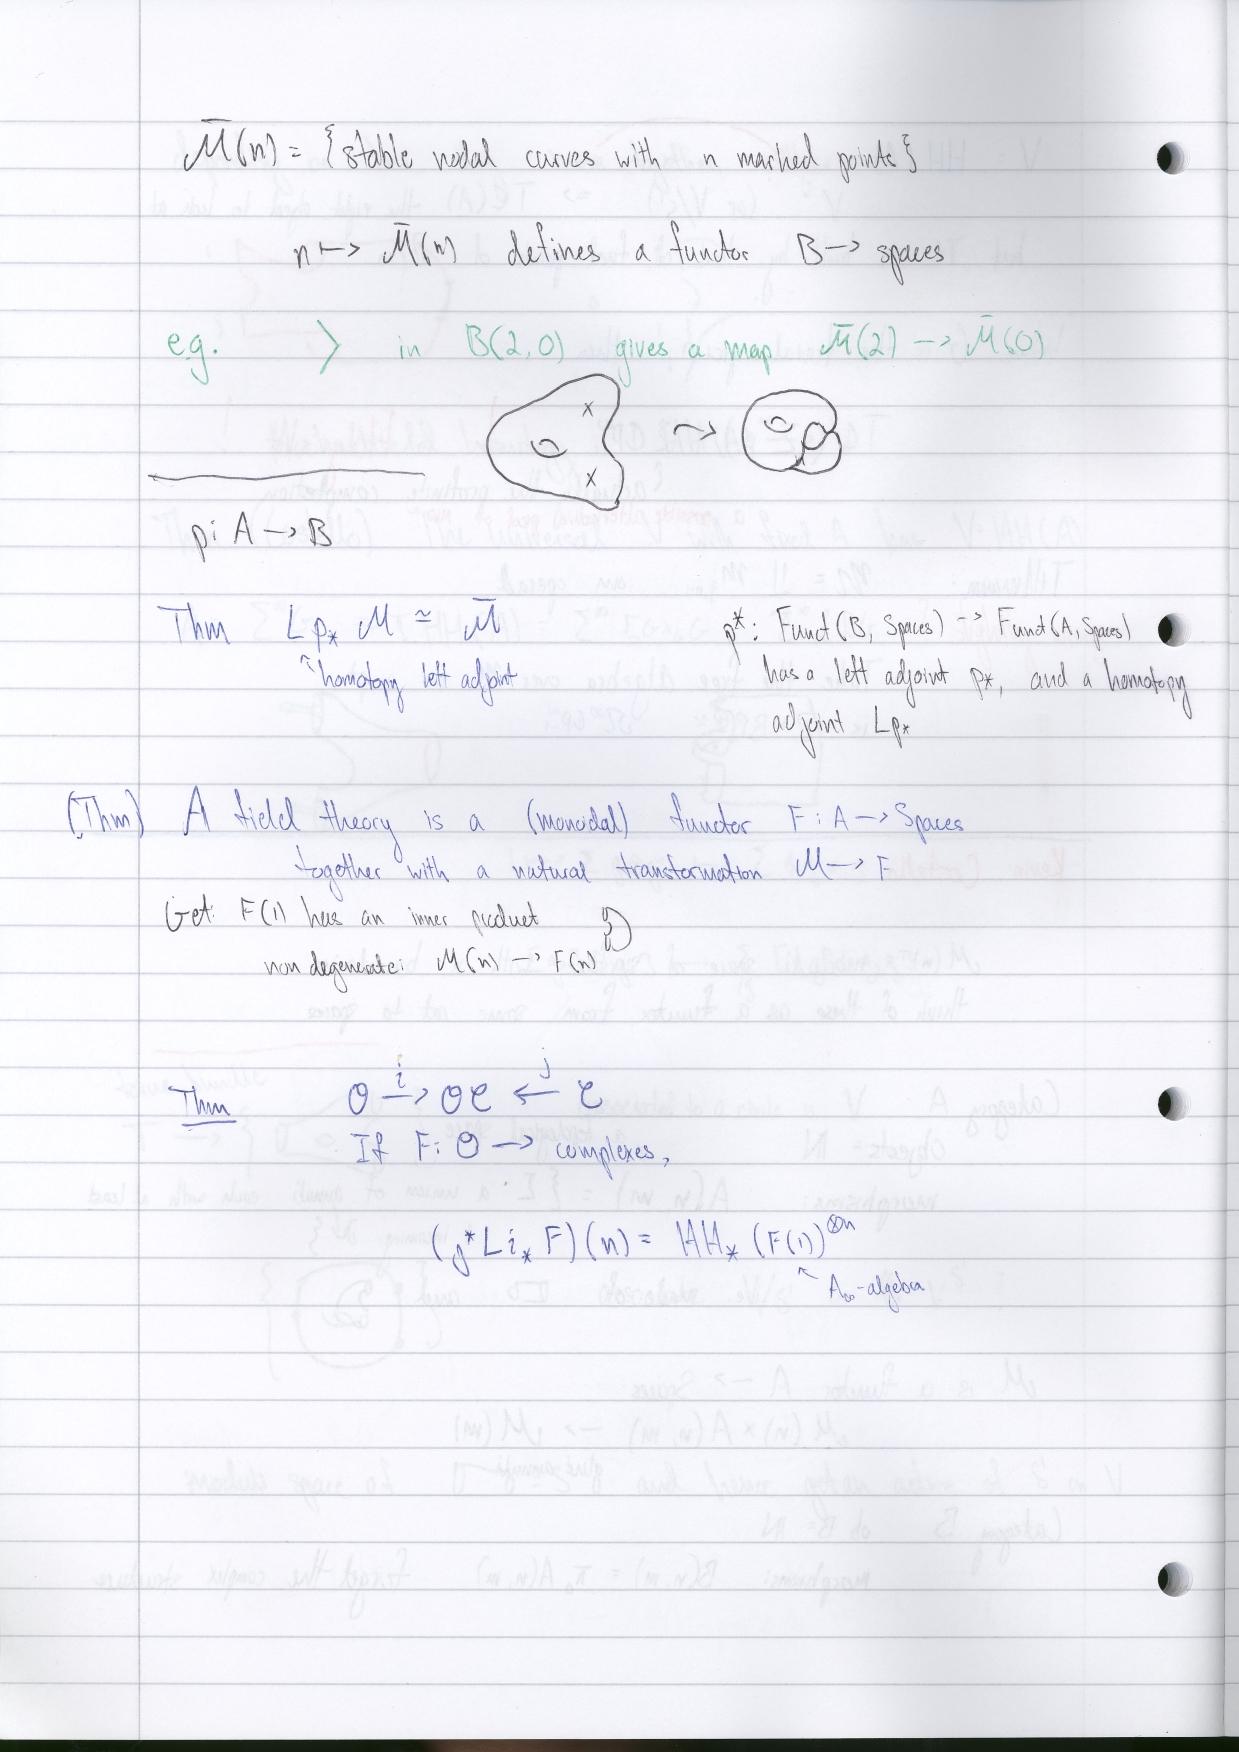 M̄(n) = {stable nodal curves with n marked points}
n ↦ M̄(n) defines a functor B → spaces
e.g. ⟩ in B(2,0) gives a map M̄(2) → M̄(0)
p: A → B
Thm Lp_* M ≃ M̄
↑ homotopy left adjoint
p^*: Funct(B, Spaces) → Funct(A, Spaces)
has a left adjoint p_*, and a homotopy
adjoint Lp_*
(Thm) A field theory is a (monoidal) functor F: A → Spaces
together with a natural transformation M → F
Get: F(1) has an inner product
non degenerate: M(n) → F(n)
Thm O →^i OC ←^j C
If F: O → complexes,
(j^* L i_* F)(n) = HH_* (F(1))^{⊗n}
↑ A∞-algebra